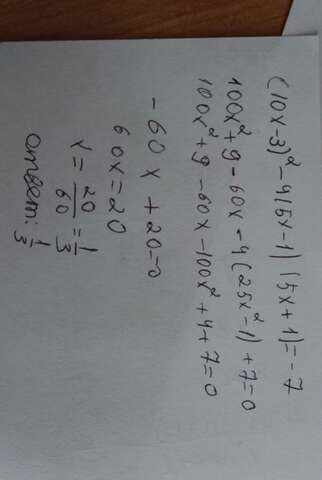 (10x-3)² - 4(5x-1)(5x+1) = -7
100x² + 9 - 60x - 4(25x² - 1) + 7 = 0
100x² + 9 - 60x - 100x² + 4 + 7 = 0
-60x + 20 = 0
60x = 20
x = 20/60 = 1/3
ответ: 1/3